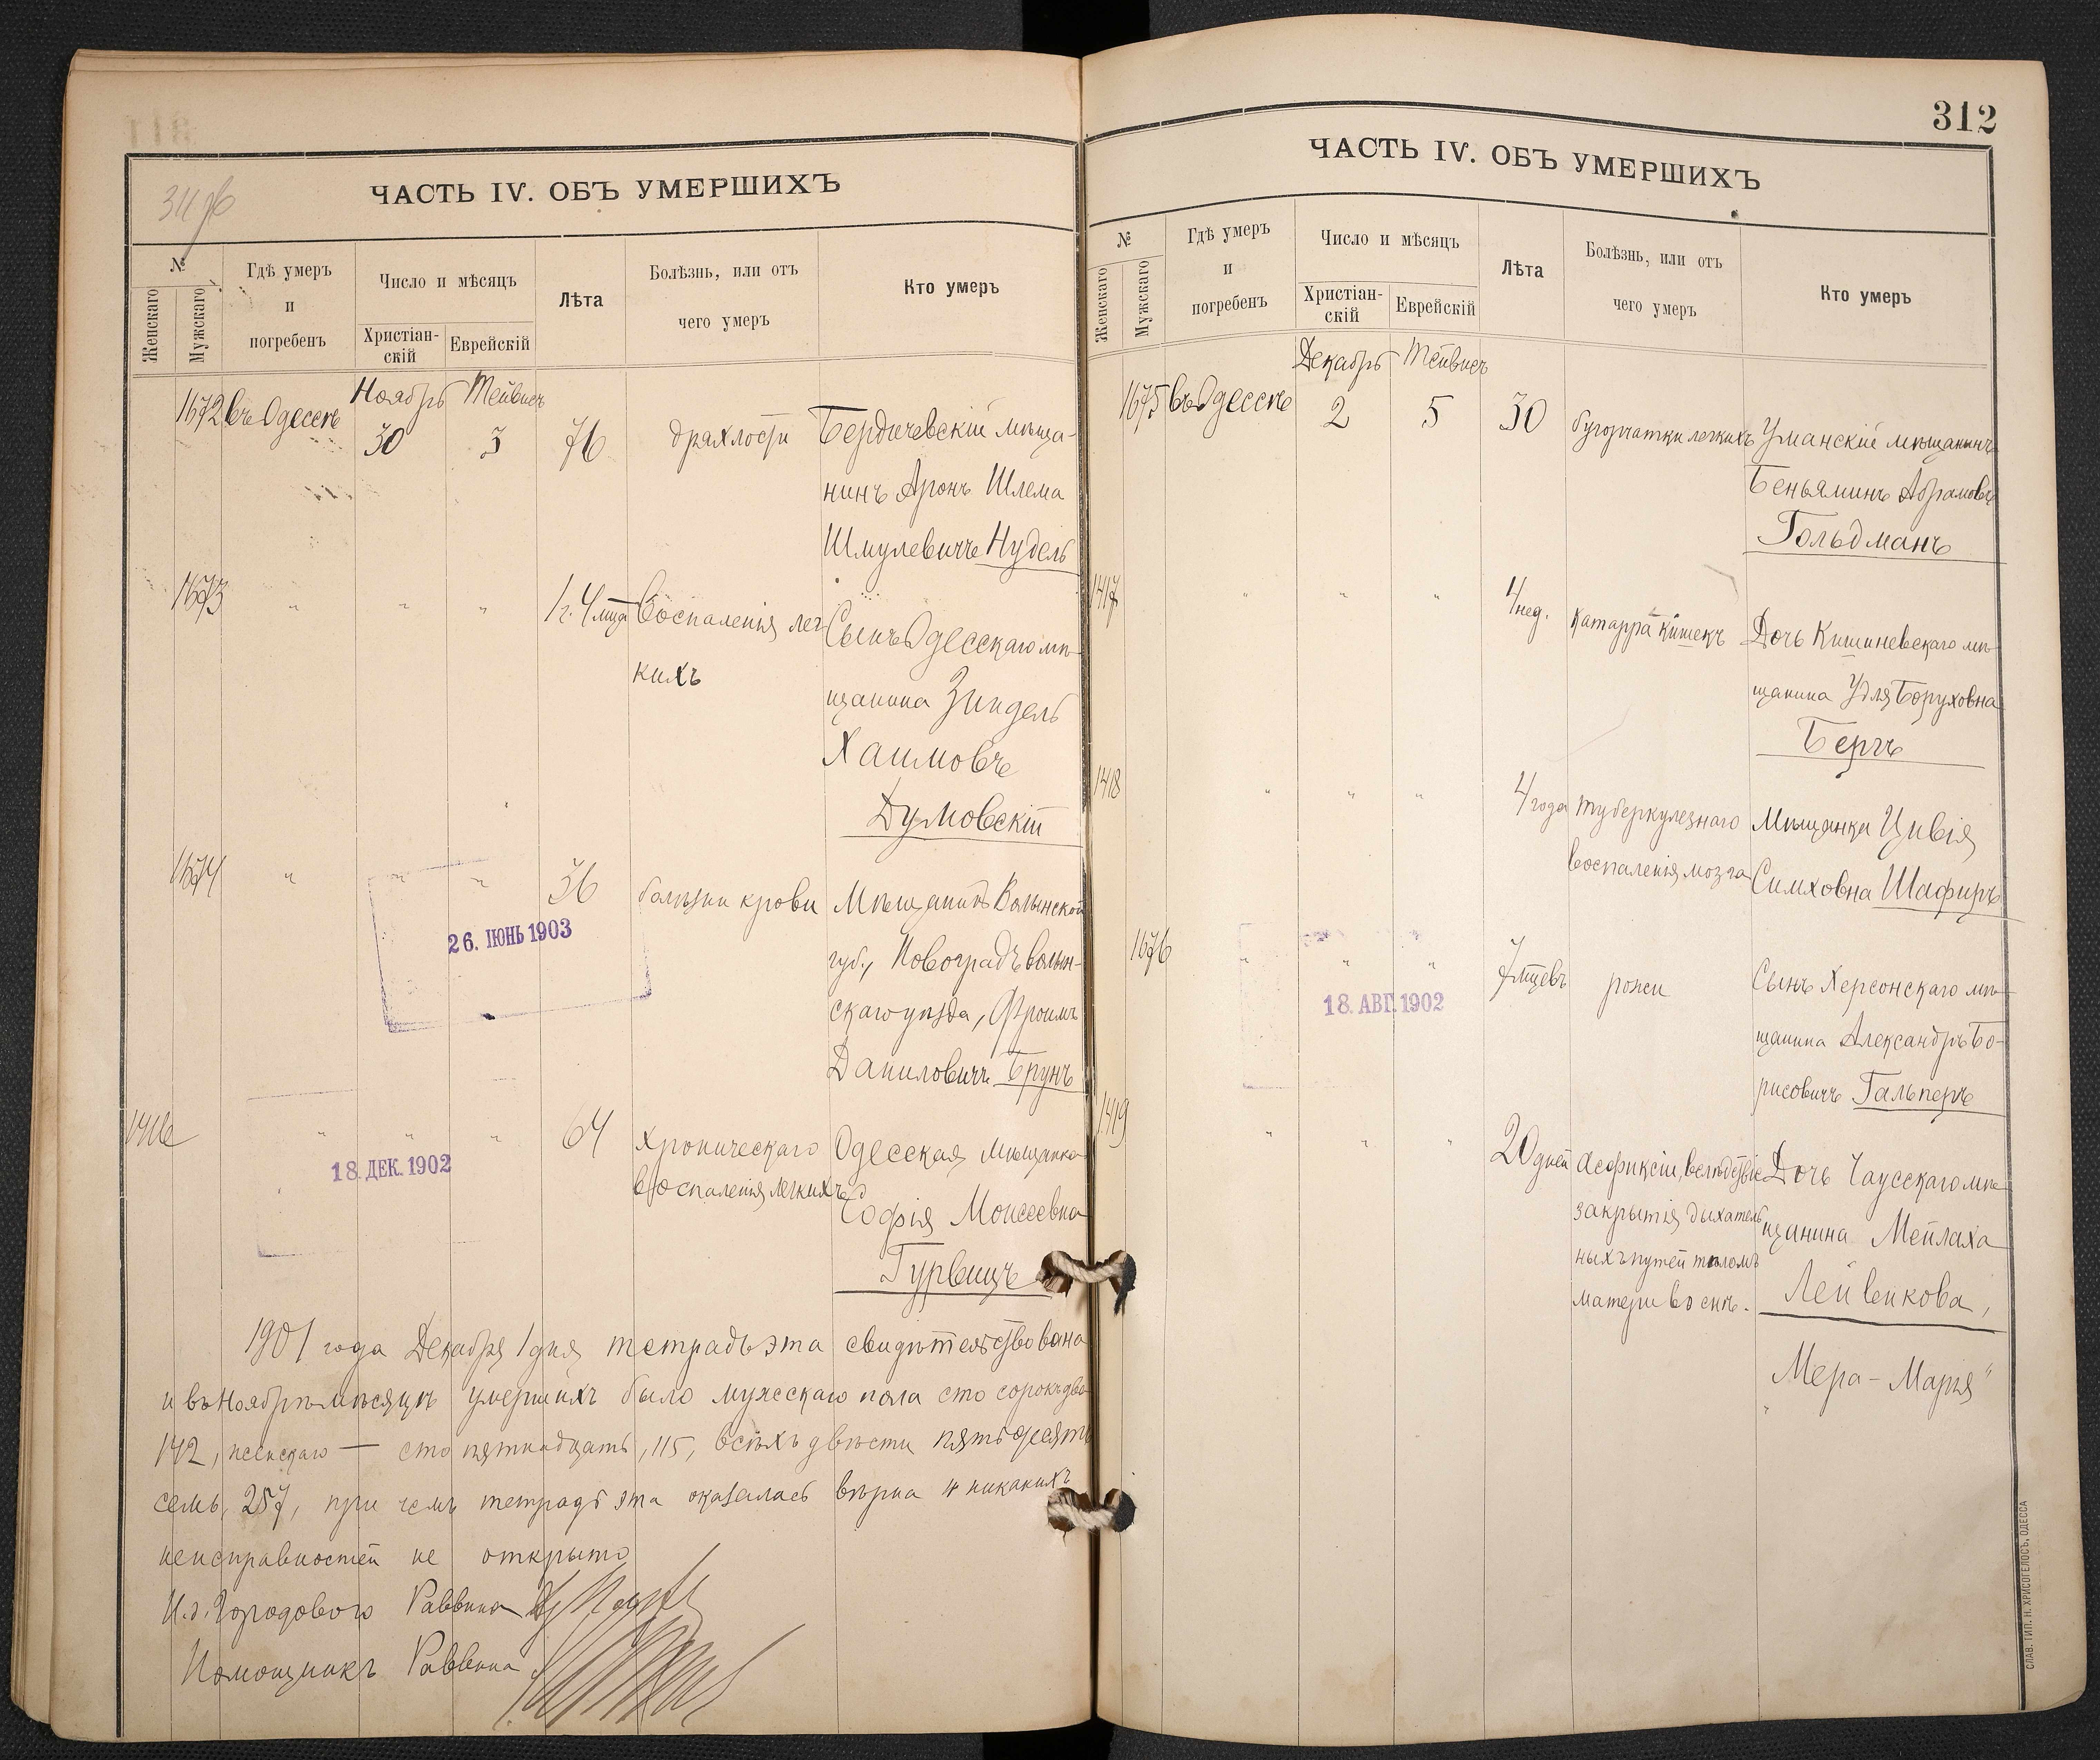 311об
ЧАСТЬ IV. ОБЪ УМЕРШИХЪ
№
Женскаго
Мужскаго
Гдѣ умеръ
и
погребенъ
Число и мѣсяцъ
Христіан-
скій
Еврейскій
Лѣта
Болѣзнь, или отъ
чего умеръ
Кто умеръ
Ноябрь Тейвисъ
1672 въ Одессѣ 30 3 76 дряхлости Бердичевскій мѣща-
нинъ Аронъ Шлема
Шмулевичъ Нудель
1673 " " " 1 г. 4 мца Воспаленія лег-
кихъ
Сынъ Одесскаго мѣ-
щанина Зиндель
Хаимовъ
Думовскій
1674 " " " 36 болѣзни крови Мѣщанинъ Волынской
губ., Новоградъволын-
скаго уѣзда, Фроимъ
Даниловичъ Брунъ
26. ІЮНЬ 1903
1416 " " " 64 Хроническаго
воспаленія легкихъ
Одесская мѣщанка
Софія Моисеевна
Гурвицъ
18. ДЕК. 1902
1901 года Декабря 1 дня тетрадь эта свидѣтельствована
и въ Ноябрѣ мѣсяцѣ умершихъ было мужескаго пола сто сорокъ два
142, женскаго — сто пятнадцать, 115, всѣхъ двѣсти пятьдесятъ
семь, 257, при чемъ тетрадь эта оказалась вѣрна и никакихъ
неисправностей не открыто
И.д. Городового Раввина
Помощникъ Раввина
312
ЧАСТЬ IV. ОБЪ УМЕРШИХЪ
№
Женскаго
Мужскаго
Гдѣ умеръ
и
погребенъ
Число и мѣсяцъ
Христіан-
скій
Еврейскій
Лѣта
Болѣзнь, или отъ
чего умеръ
Кто умеръ
Декабрь Тейвисъ
1675 въ Одессѣ 2 5 30 бугорчатки легкихъ Уманскій мѣщанинъ
Беньяминъ Абрамовъ
Гольдманъ
1417 " " " 4 нед. катарра кишекъ Дочь Кишиневскаго мѣ-
щанина Удля Боруховна
Бергъ
1418 " " " 4 года туберкулезнаго
воспаленія мозга
Мѣщанка Цивія
Симховна Шафиръ
1676 " " " 7 мцевъ рожи Сынъ Херсонскаго мѣ-
щанина Александръ Бо-
рисовичъ Гальперъ
18. АВГ. 1902
1419 " " " 20 дней Асфиксіи, вслѣдствіе
закрытія дыхатель
ныхъ путей тѣломъ
матери во снѣ.
Дочь Чаусскаго мѣ-
щанина Мейлаха
Лейвикова,
"Мера-Марья"
СЛАВ. ТИП. Н. ХРИСОГЕЛОСЪ. ОДЕССА